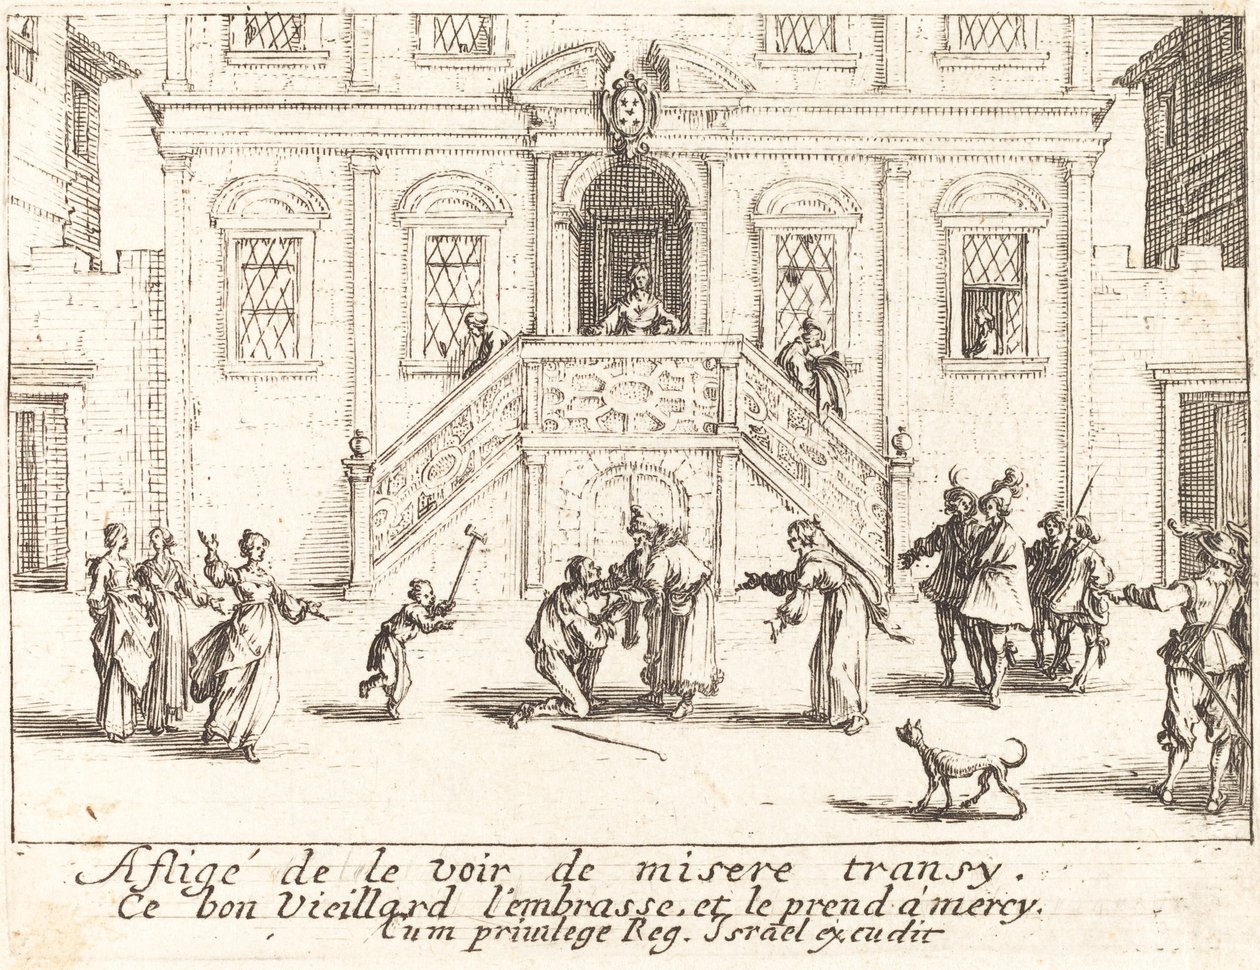 Afligé de le voir de misere transy.
Ce bon Vieillard l'embrasse, et le prend à mercy.
Cum privilege Reg. Israel excudit